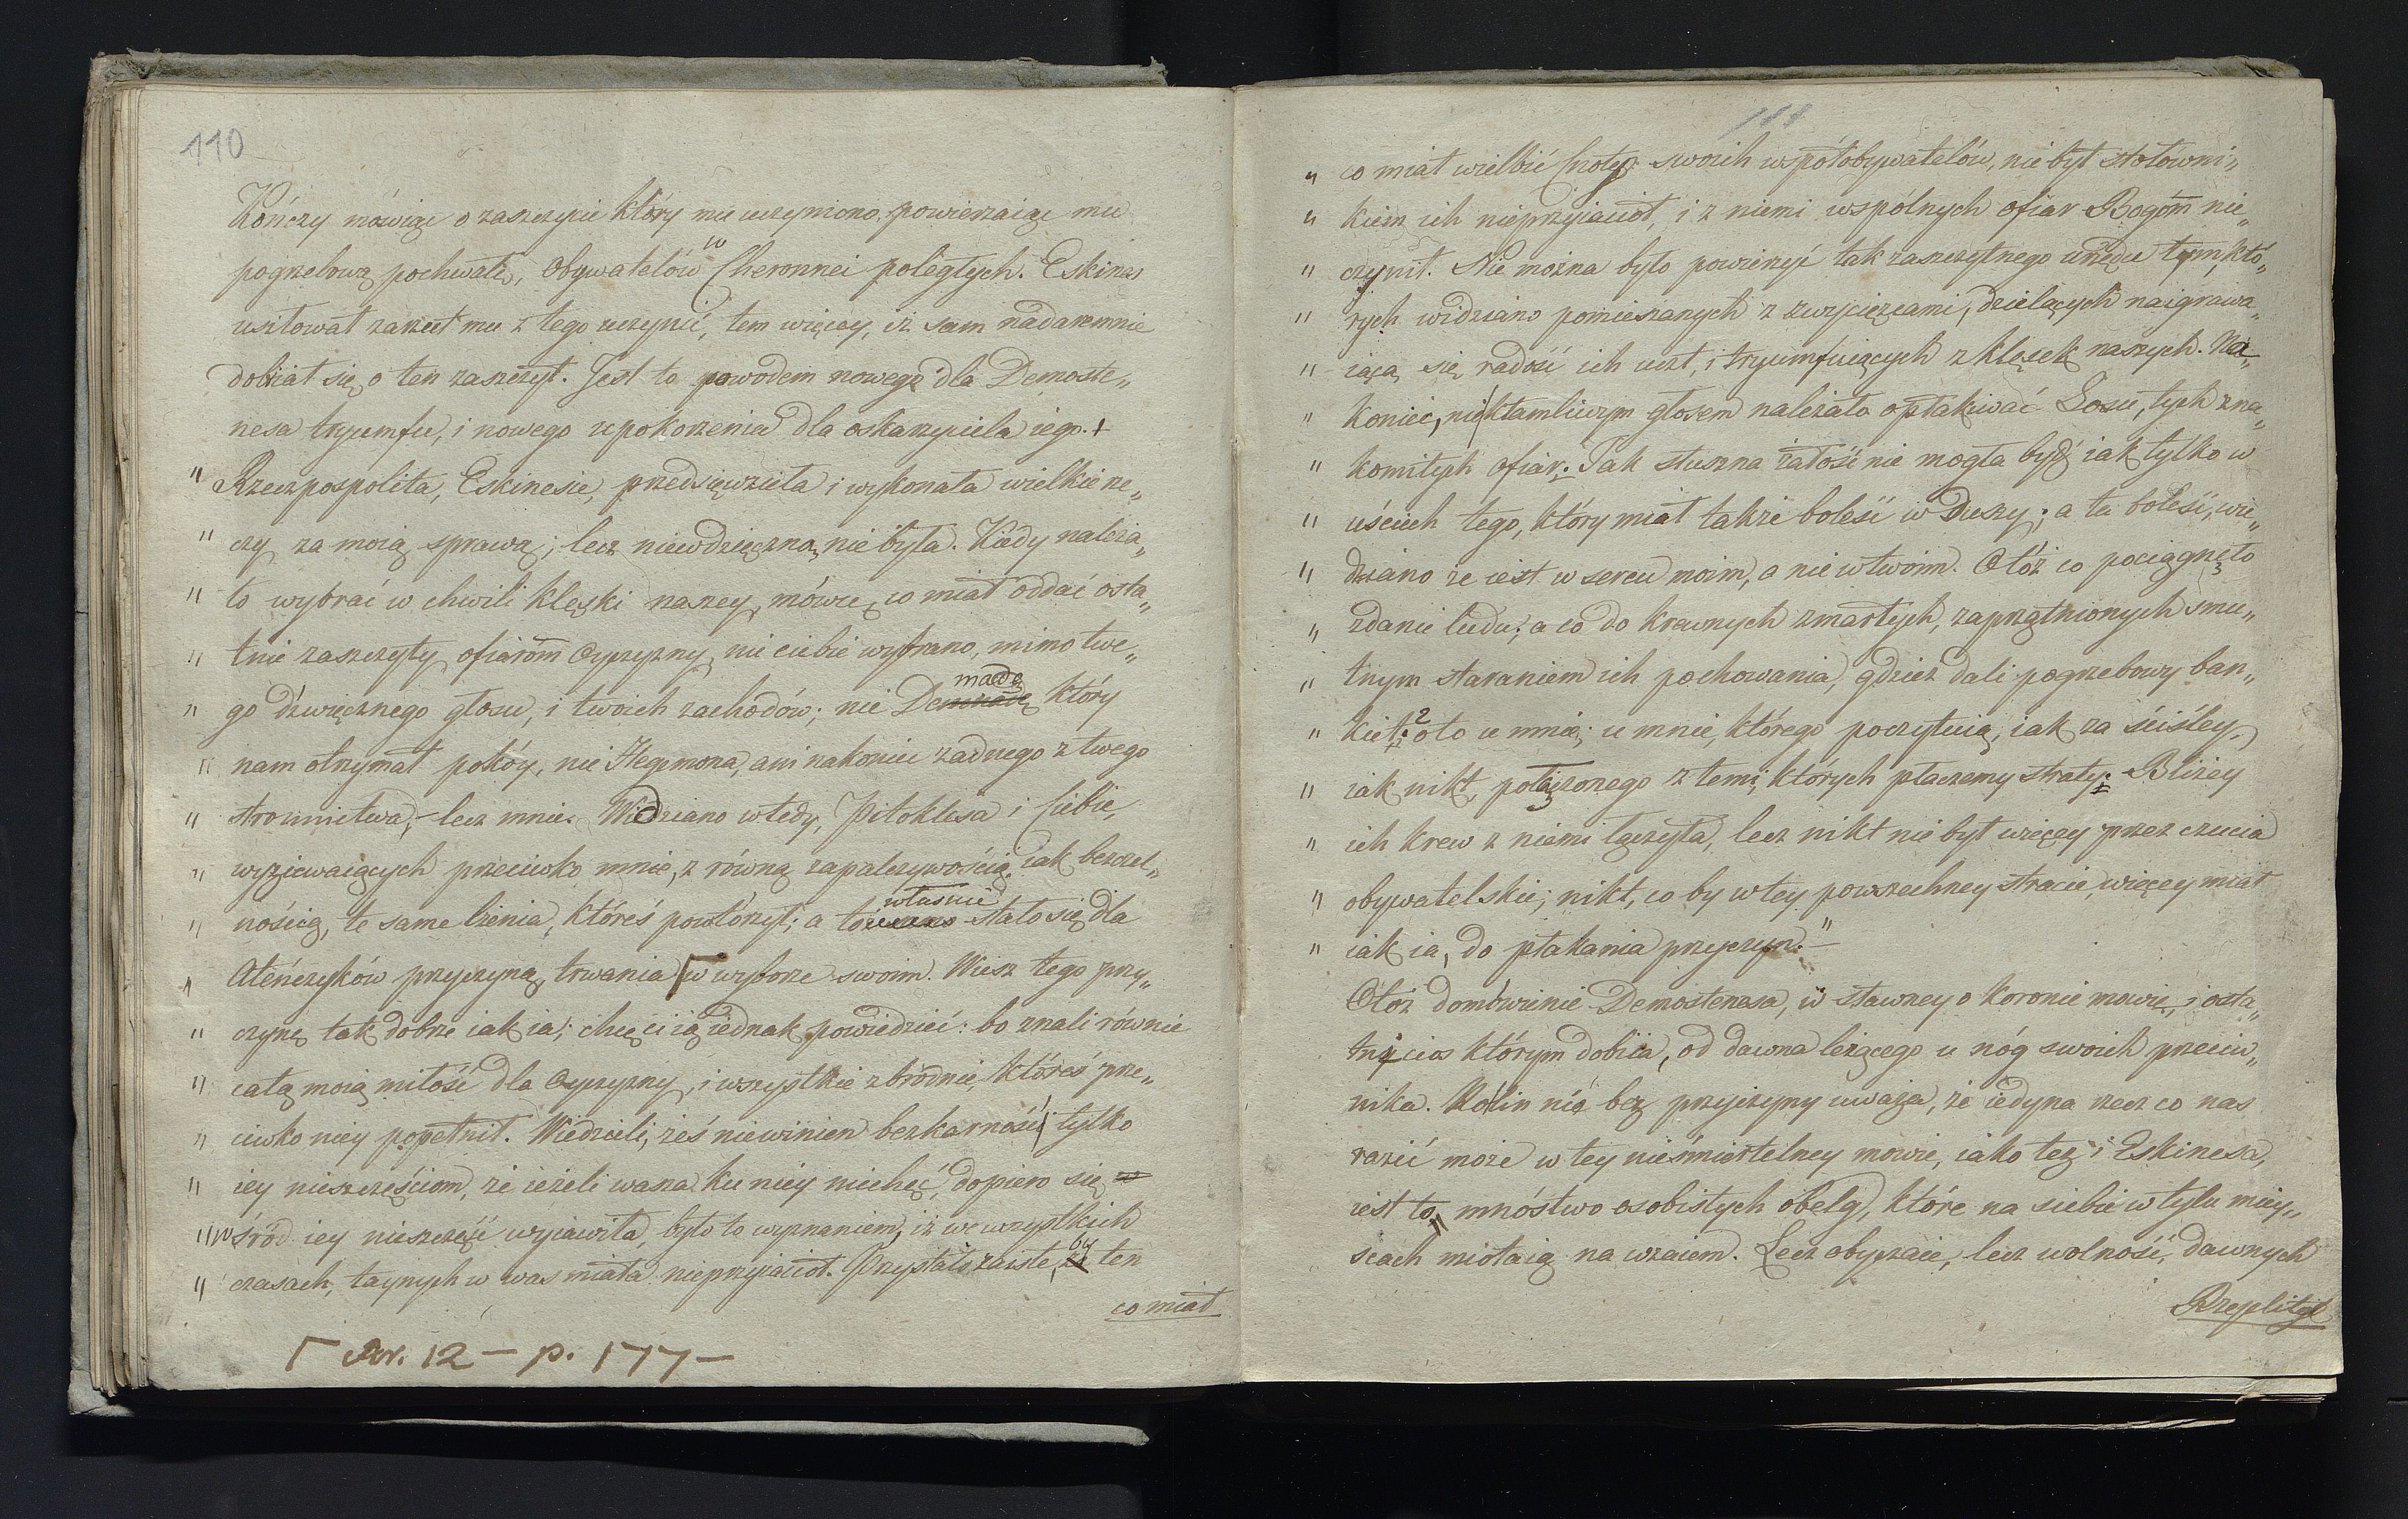 110
Kończy mówiąc o zaszczycie który mu uczyniono, powierzaiąc mu
pogrzebową pochwałę, Obywatelów w Cheronnei poległych. Eskines
usiłował zarzut mu z tego uczynić, tem więcey, iż sam nadaremnie
dobiiał się o ten zaszczyt. Jest to powodem nowego dla Demoste„
nesa tryumfu, i nowego upokorzenia dla oskarzyciela iego. +
" Rzeczpospolita, Eskinesie, przedsięwzięła i wykonała wielkie rze„
" czy za moią sprawą; lecz niewdzięczną nie była. Kiedy należa„
" ło wybrać w chwili klęski naszey, mówcę, co miał oddać osta„
" tnie zaszczyty ofiaróm Oyczyzny, nie ciebie wybrano, mimo twe„
" go dźwięcznego głosu, i twoich zachodów; nie Demadę który
" nam otrzymał pokóy, nie Hegemona, ani nakoniec żadnego z twego
" stronnictwa, – lecz mnie. Widziano wtedy, Pitoklesa i Ciebie,
" wyziewaiących przeciwko mnie, z równą zapalczywością, iak bezczel„
" nością, te same lżenia, któreś powtórzył; a to właśnie stało się dla
" Ateńczyków przyczyną, trwania ⌈ w wyborze swoim. Wiesz tego przy„
" czynę tak dobrze iak ia; chcę ci ią iednak powiedzieć: bo znali równie
" całą moią miłość dla Oyczyzny, i wszystkie zbrodnie, któreś prze„
" ciwko niey popełnił. Wiedzieli, żeś niewinien bezkarności tylko
" iey nieszczęściom, że ieżeli wasza ku niey niechęć, dopiero się
" w śród iey nieszczęść wyiawiła, było to wyznaniem, iż we wszystkich
" czasach, taynych w was miała nieprzyiaciół. Przystało zaiste, by ten
co miał
⌈ Ar. 12 – p. 177 –
111
" co miał wielbić Cnotę swoich współobywatelów, nie był stołowni„
" kiem ich nieprzyiaciół, i z niemi wspólnych ofiar Bogóm nie„
" czynił. Nie można było powierzyć tak zaszczytnego urzędu tym, któ„
" rych widziano pomieszanych z zwycięzcami, dzielących naigrawa„
" iącą się radość ich uczt, i tryumfuiących z klęsek naszych. Na„
" koniec, nie kłamliwym głosem należało opłakiwać Losu, tych zna„
" komitych ofiar. Tak słuszna żałość nie mogła być iak tylko w
" uściech tego, który miał także boleść w Duszy; a tę boleść, wie„
" dziano że iest w sercu moim, a nie w twoim. Otóż co pociągnęło
" zdanie ludu; a co do krewnych zmarłych, zaprzątnionych smu„
" tnym staraniem ich pochowania, gdzież dali pogrzebowy ban„
" kiet? oto u mnie; u mnie, którego poczytuią, iak za ściśley,
" iak nikt, połączonego z temi, których płaczemy straty. Bliżey
" ich krew z niemi łączyła, lecz nikt nie był więcey przez czucia
" obywatelskie; nikt, co by w tey powszechney stracie, więcey miał
" iak ia, do płakania przyczyn." –
Otóż domówienie Demostenesa, w sławney o koronie mowie, i osta„
tni cios którym dobiia, od dawna leżącego u nóg swoich przeciw„
nika. Rolin nie bez przyczyny uważa, że iedyna rzecz co nas
razić może w tey nieśmiertelney mowie, iako też i Eskinesa,
iest to, mnóstwo osobistych obelg, które na siebie w tylu miey„
scach miotaią na wzaiem. Lecz obyczaie, lecz wolność, dawnych
Rzeplitych